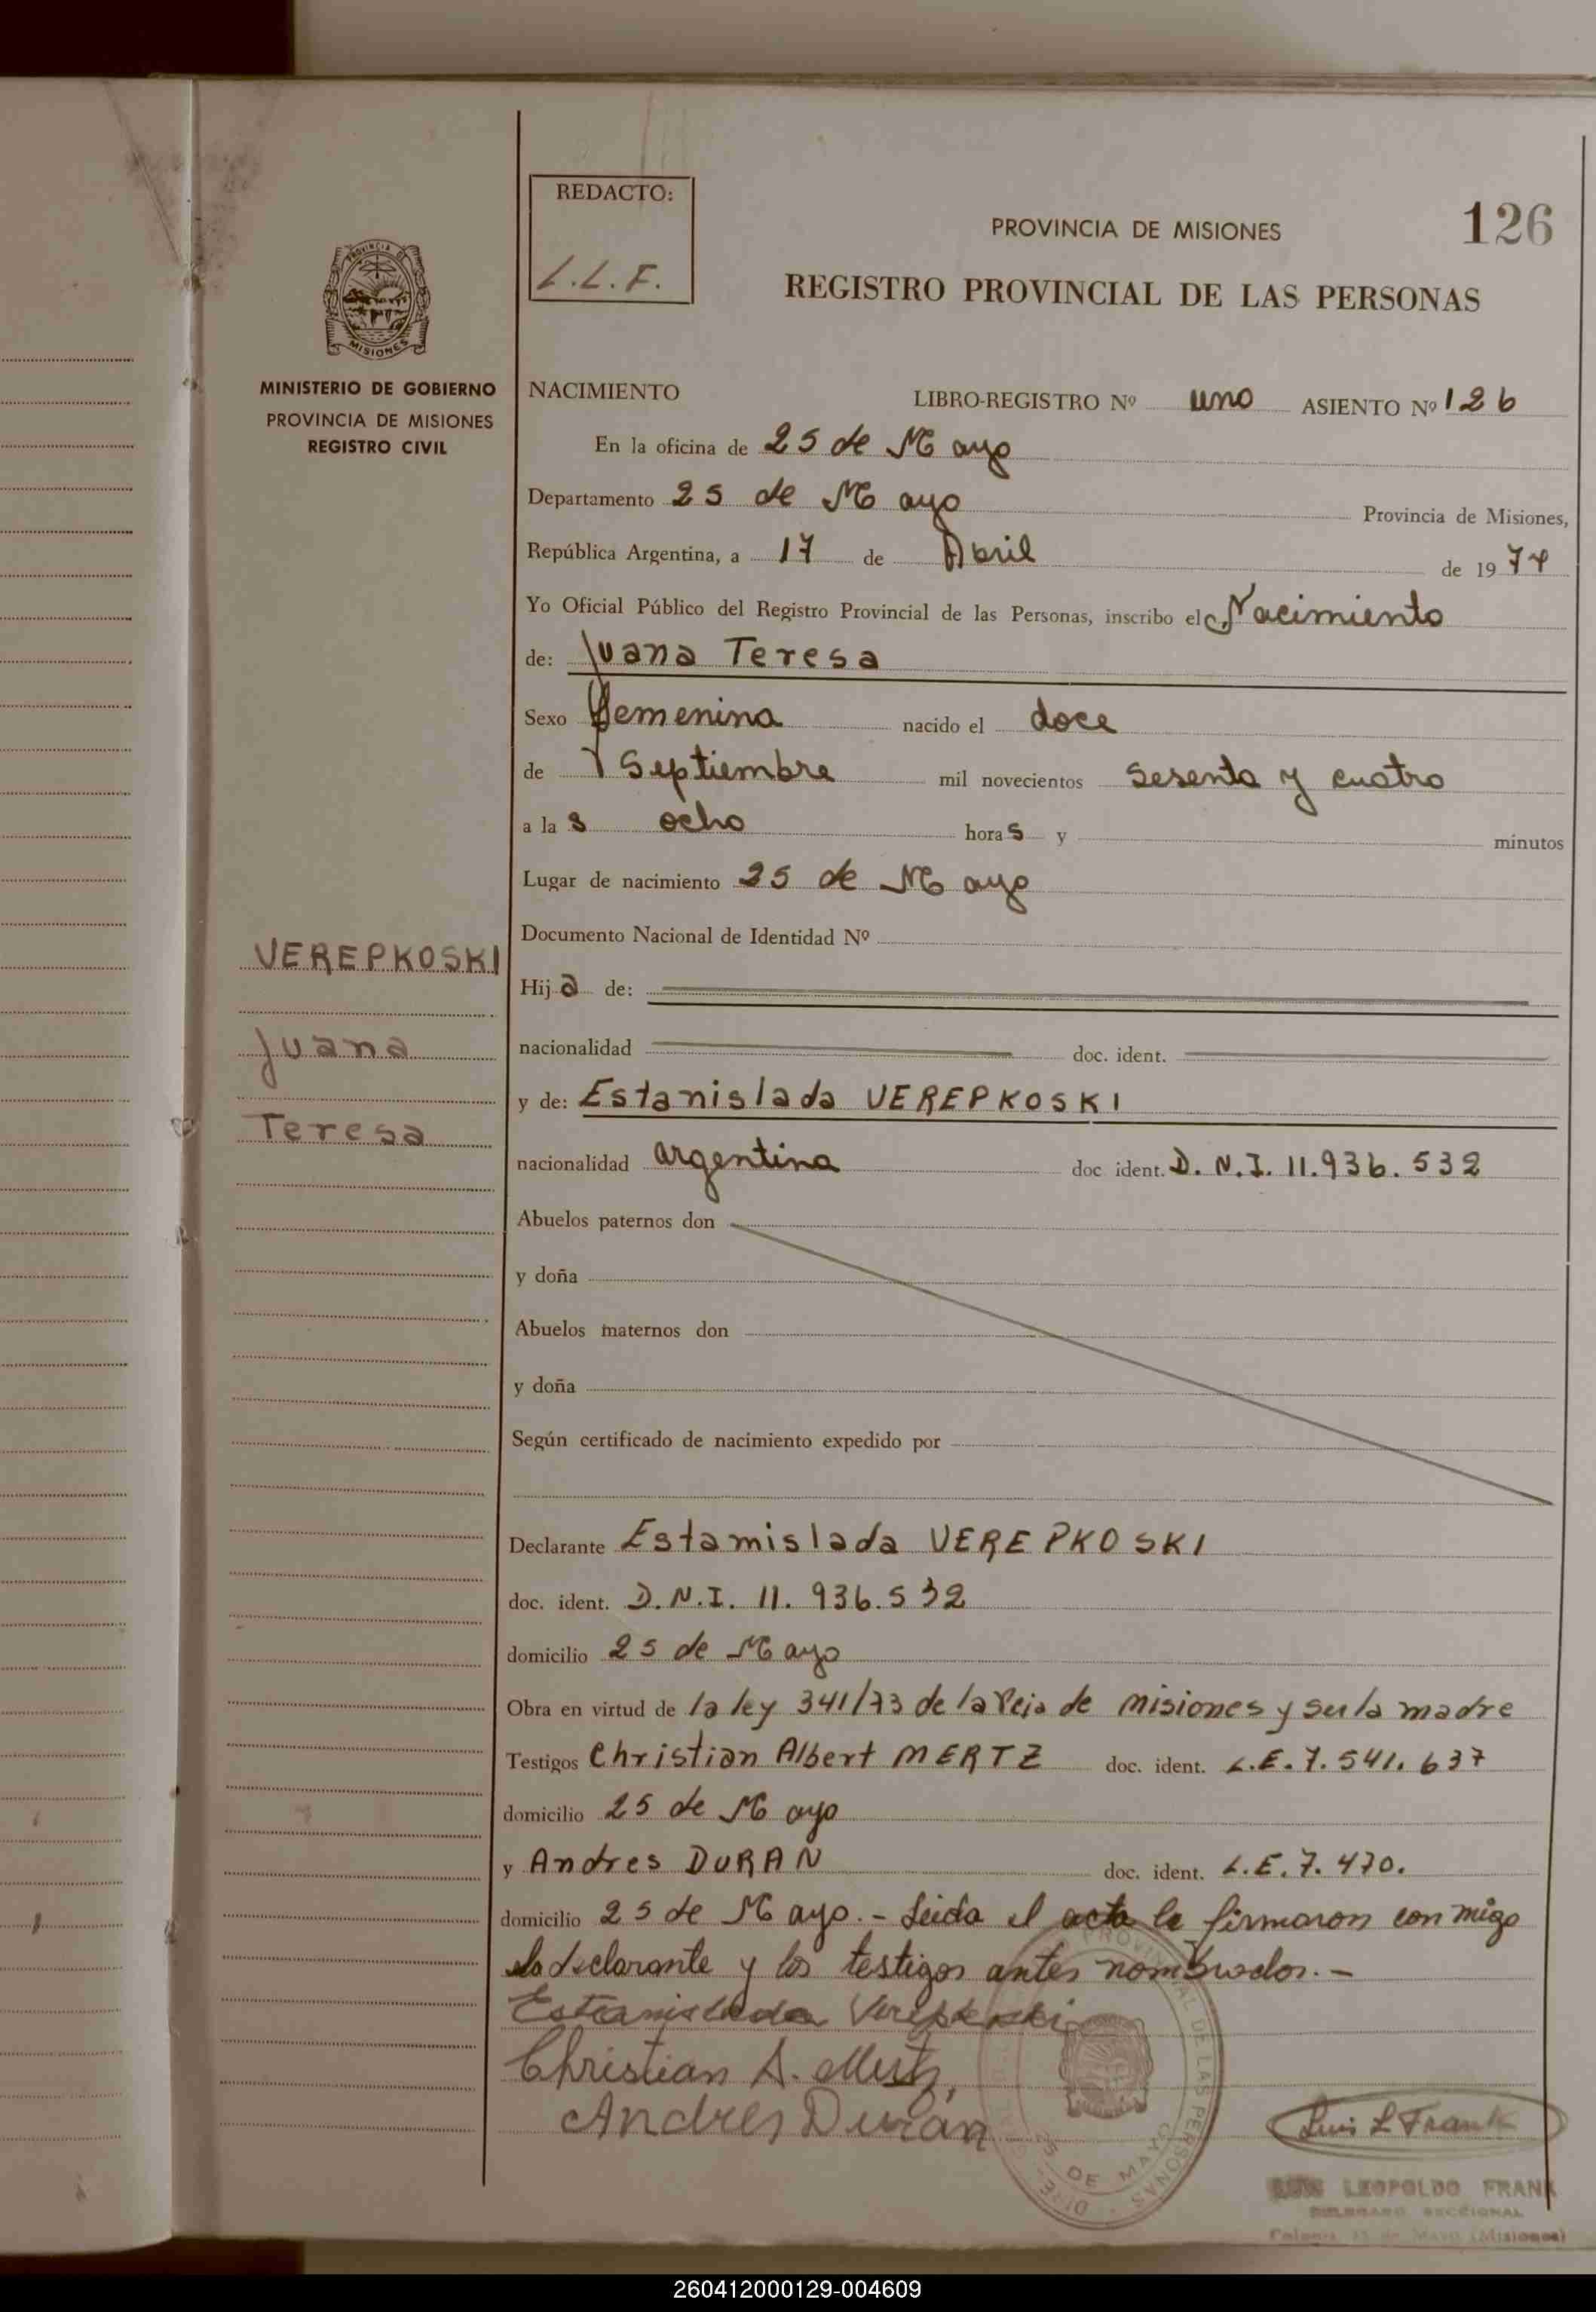 REDACTO:
L.L.F.
PROVINCIA DE MISIONES
126
REGISTRO PROVINCIAL DE LAS PERSONAS
PROVINCIA DE
MISIONES
MINISTERIO DE GOBIERNO
PROVINCIA DE MISIONES
REGISTRO CIVIL
NACIMIENTO LIBRO-REGISTRO Nº uno ASIENTO Nº 126
En la oficina de 25 de Mayo
Departamento 25 de Mayo Provincia de Misiones,
República Argentina, a 17 de Abril de 1974
Yo Oficial Público del Registro Provincial de las Personas, inscribo el Nacimiento
de: Juana Teresa
Sexo femenina nacido el doce
de Septiembre mil novecientos sesenta y cuatro
a las ocho horas y minutos
Lugar de nacimiento 25 de Mayo
Documento Nacional de Identidad Nº
VEREPKOSKI
Hija de:
Juana
nacionalidad doc. ident.
y de: Estanislada VEREPKOSKI
Teresa
nacionalidad argentina doc ident. D.N.I. 11.936.532
Abuelos paternos don
y doña
Abuelos maternos don
y doña
Según certificado de nacimiento expedido por
Declarante Estamislada VEREPKOSKI
doc. ident. D.N.I. 11.936.532
domicilio 25 de Mayo
Obra en virtud de la ley 341/73 de la Pcia de misiones y ser la madre
Testigos Christian Albert MERTZ doc. ident. L.E. 7.541.637
domicilio 25 de Mayo
y Andres DURAN doc. ident. L.E. 7.470.
domicilio 25 de Mayo.- Leida el acta la firmaron conmigo
la declarante y los testigos antes nombrados.-
Estanislada Verepkoski
Christian A. Mertz
Andres Durán
PROVINCIAL DE LAS PERSONAS
25 DE MAYO
Luis L Frank
LUIS LEOPOLDO FRANK
DELEGADO SECCIONAL
Colonia 25 de Mayo (Misiones)
260412000129-004609